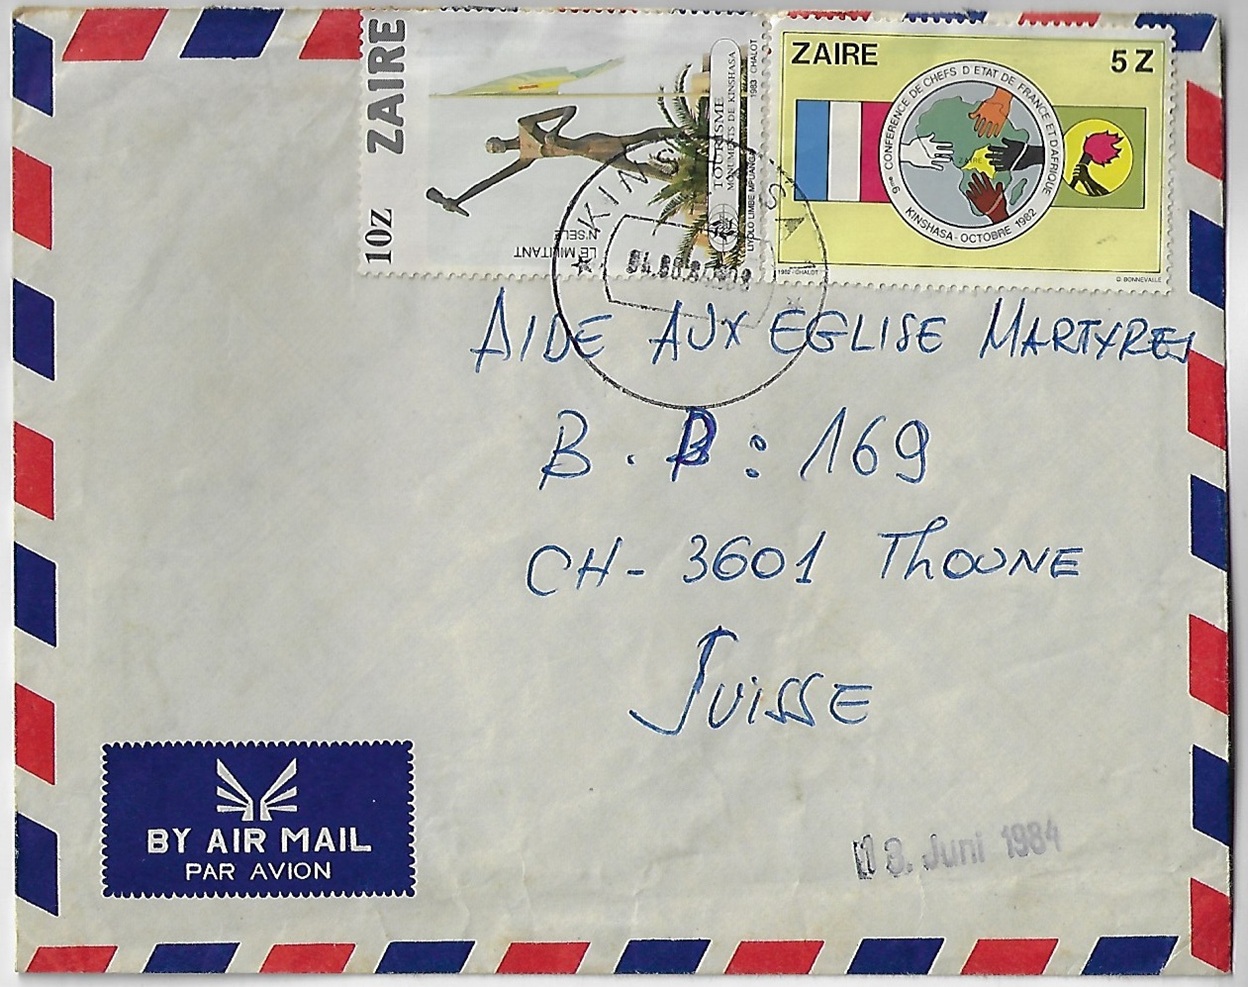 ZAIRE
10Z
LE MILITANT
N'SELE
TOURISME
MONUMENTS DE KINSHASA
LIYOLO LIMBE MPUANGA
1983 - CHALOT
ZAIRE 5 Z
9me CONFERENCE DE CHEFS D'ETAT DE FRANCE ET D'AFRIQUE
ZAIRE
KINSHASA - OCTOBRE 1982
1982 - CHALOT
O BONNEVALLE
KINSHASA 1
AIDE AUX EGLISE MARTYRES
B. P : 169
CH - 3601 THOUNE
SUISSE
BY AIR MAIL
PAR AVION
Juni 1984